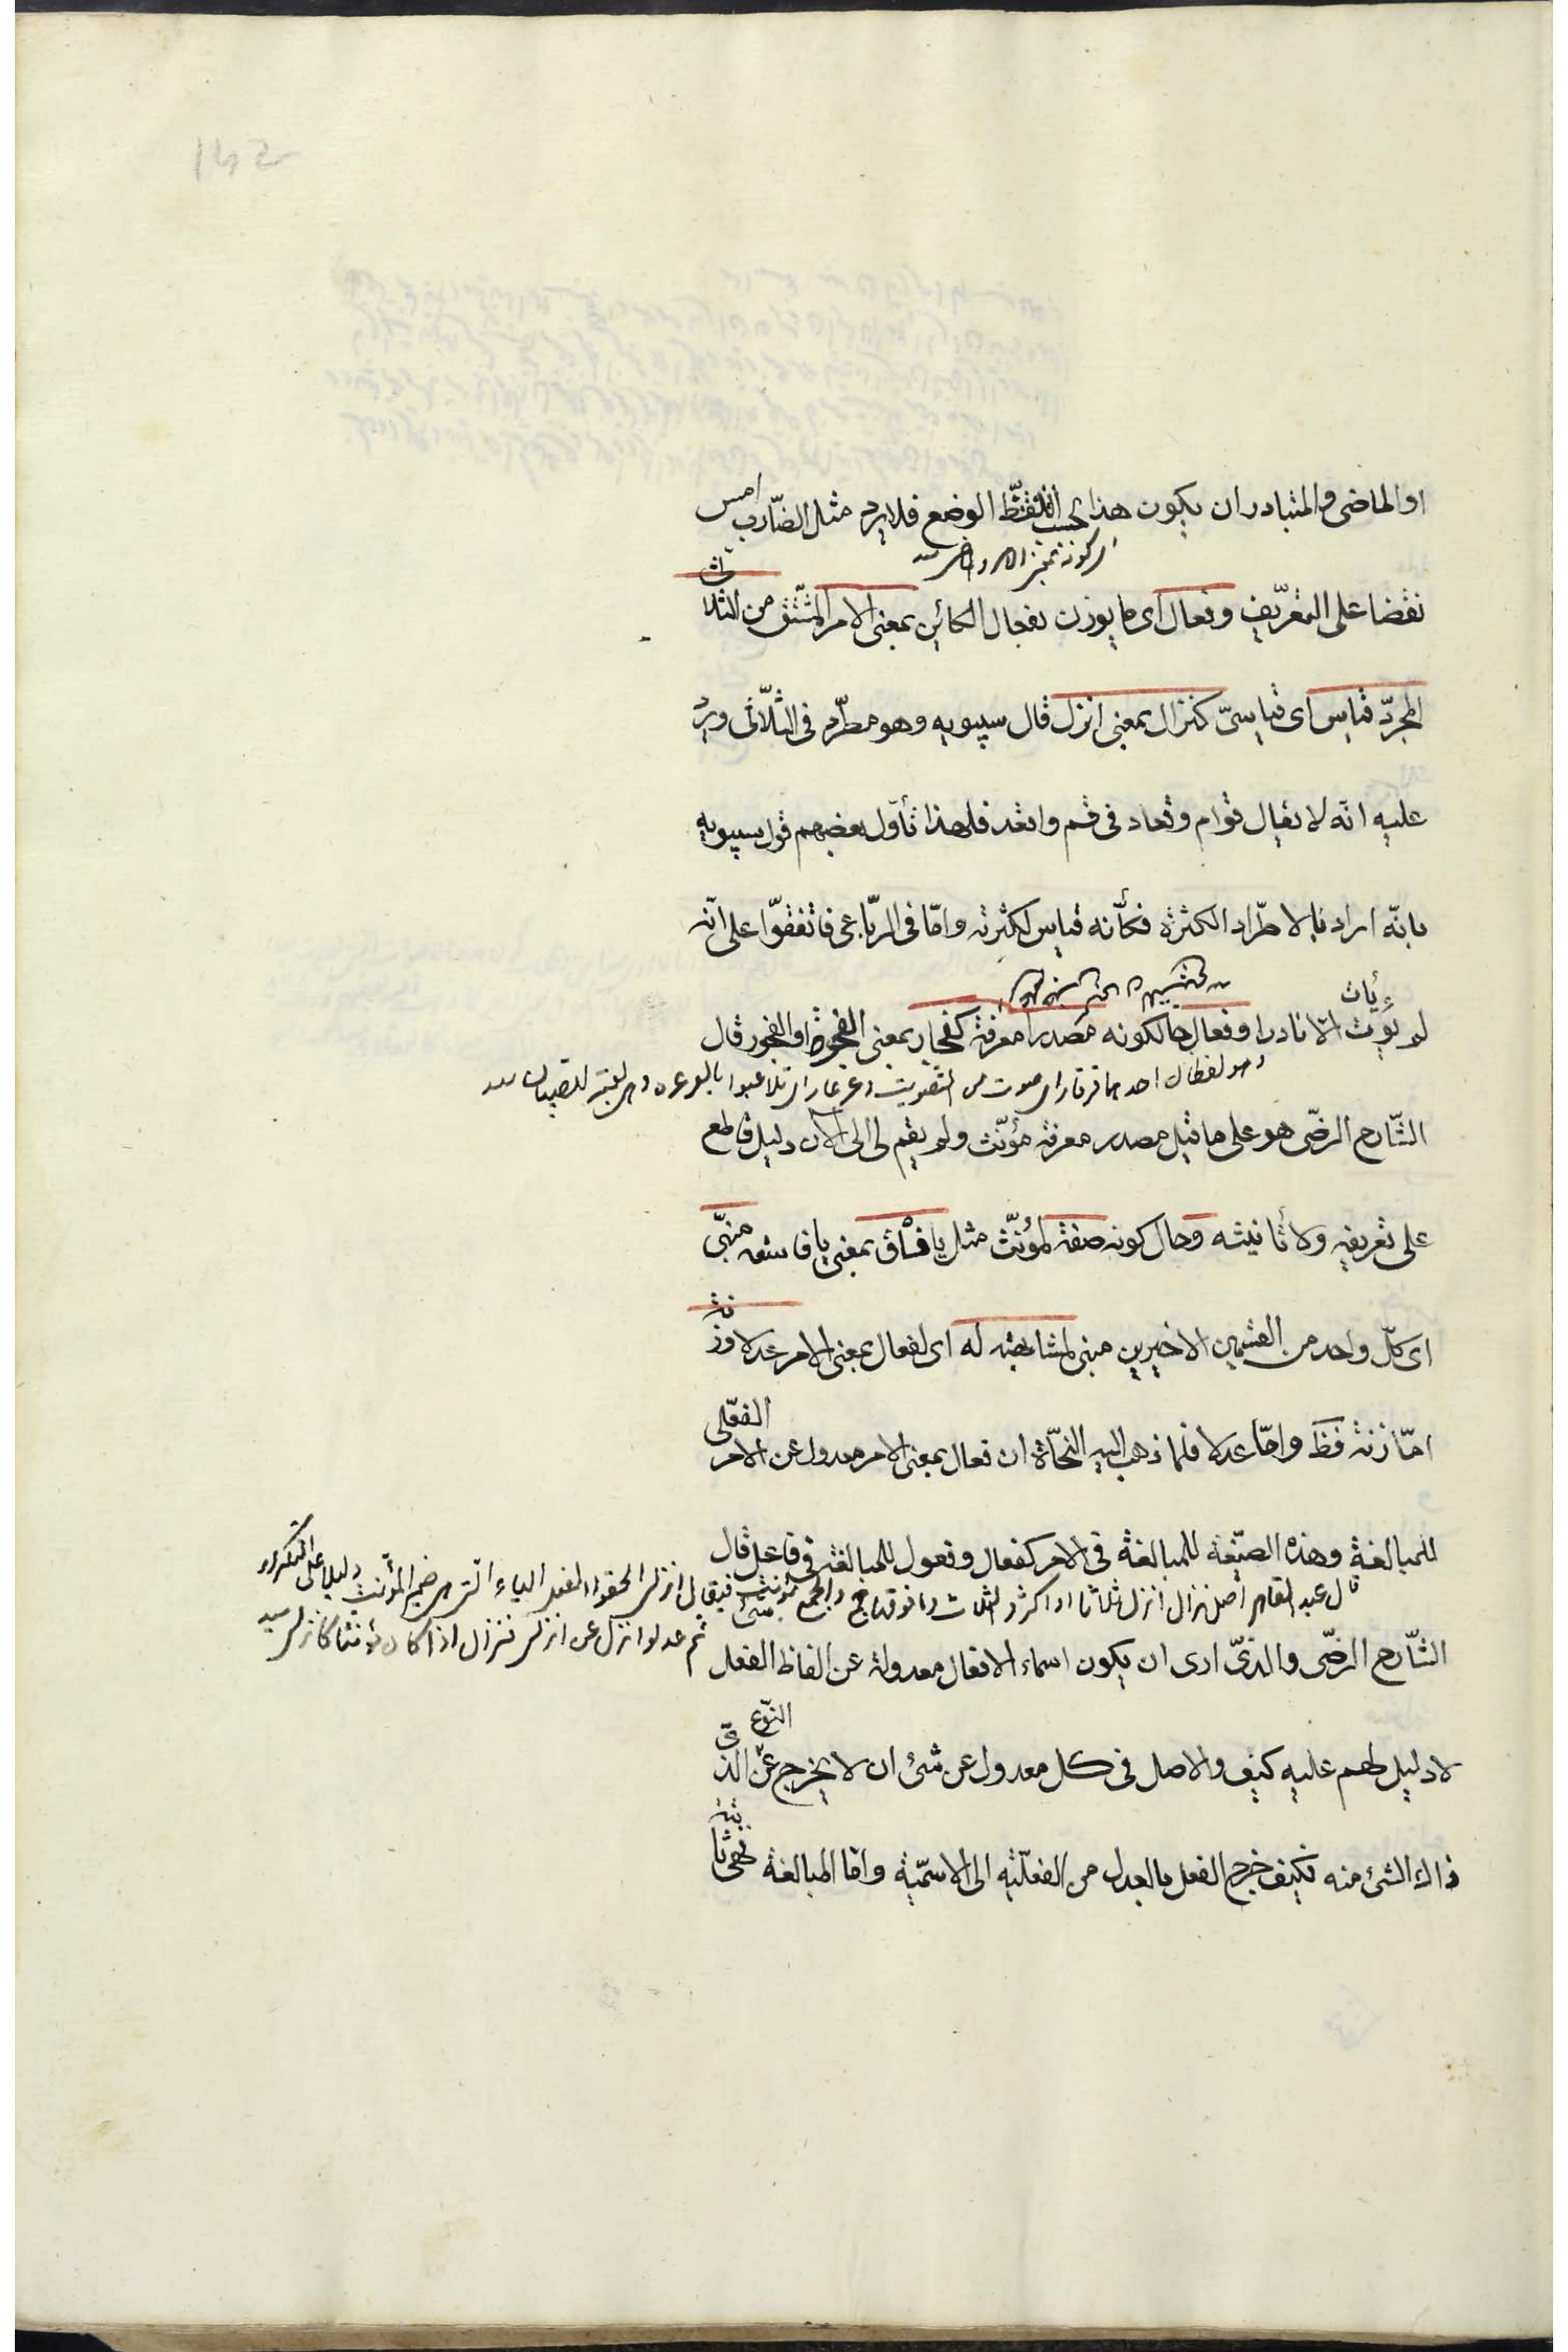 او الماضى والمتبادر ان يكون هذا بحسب الوضع فلا يرد مثل الضّارب امس
نقضا على التعريف وفعال اى ما يوزن بفعال الكائن بمعنى الامر المشتق من الثلاثى
المجرّد قياس اى قياسىّ كنزال بمعنى انزل قال سيبويه وهو مطّرد فى الثّلاثى ويرد
عليه انّه لا يقال قوام وقعاد فى قم واقعد فلهذا تأوّل بعضهم قول سيبويه
بانّه اراد بالاطّراد الكثرة فكأنّه قياس لكثرته وامّا فى الرّباعى فاتّفقوا على انّه
لم يأت الا نادرا وفعال حال كونه مصدرا معرفة كفجار بمعنى الفجرة او الفجور قال
وهو لفظان احدهما قرقار اى صوت من التصويت وعرعار اى تلاعبوا بالعرعرة وهى لعبة للصبيان
الشّارح الرضّى هو على ما قيل مصدر معرفة مؤنّث ولم يقم لى الى الآن دليل قاطع
على تعريفه ولا تأنيثه وحال كونه صفة لمؤنّث مثل يا فساق بمعنى يا فاسقة مبنّى
اى كلّ واحد من القسمين الاخيرين مبنى لمشابهته له اى لفعال بمعنى الامر عدلا وزنة
امّا زنة فظ وامّا عدلا فلما ذهب اليه النّحاة ان فعال بمعنى الامر معدول عن الامر الفعلى
للمبالغة وهذه الصّيغة للمبالغة فى الامر كفعال وفعول للمبالغة فى فاعل قال
قال عبد القاهر اصل نزال انزل ثلاثا او اكثر والثلاث وما فوقها جمع والجمع مؤنث فيقال انزلى الحقوا الفعل الياء التى هى ضمير المؤنث دليلا على التكرار
ثم عدلوا نزال عن انزلى فنزال اذا كان مؤنثا كانزلى
الشّارح الرضّى والذى ارى ان يكون اسماء الافعال معدولة عن الفاظ الفعل شئ
لا دليل لهم عليه كيف والاصل فى كل معدول عن شئ ان لا يخرج عن النّوع الذى
ذاك الشئ منه فكيف خرج الفعل بالعدل من الفعليّة الى الاسميّة وامّا المبالغة فهى ثابتة